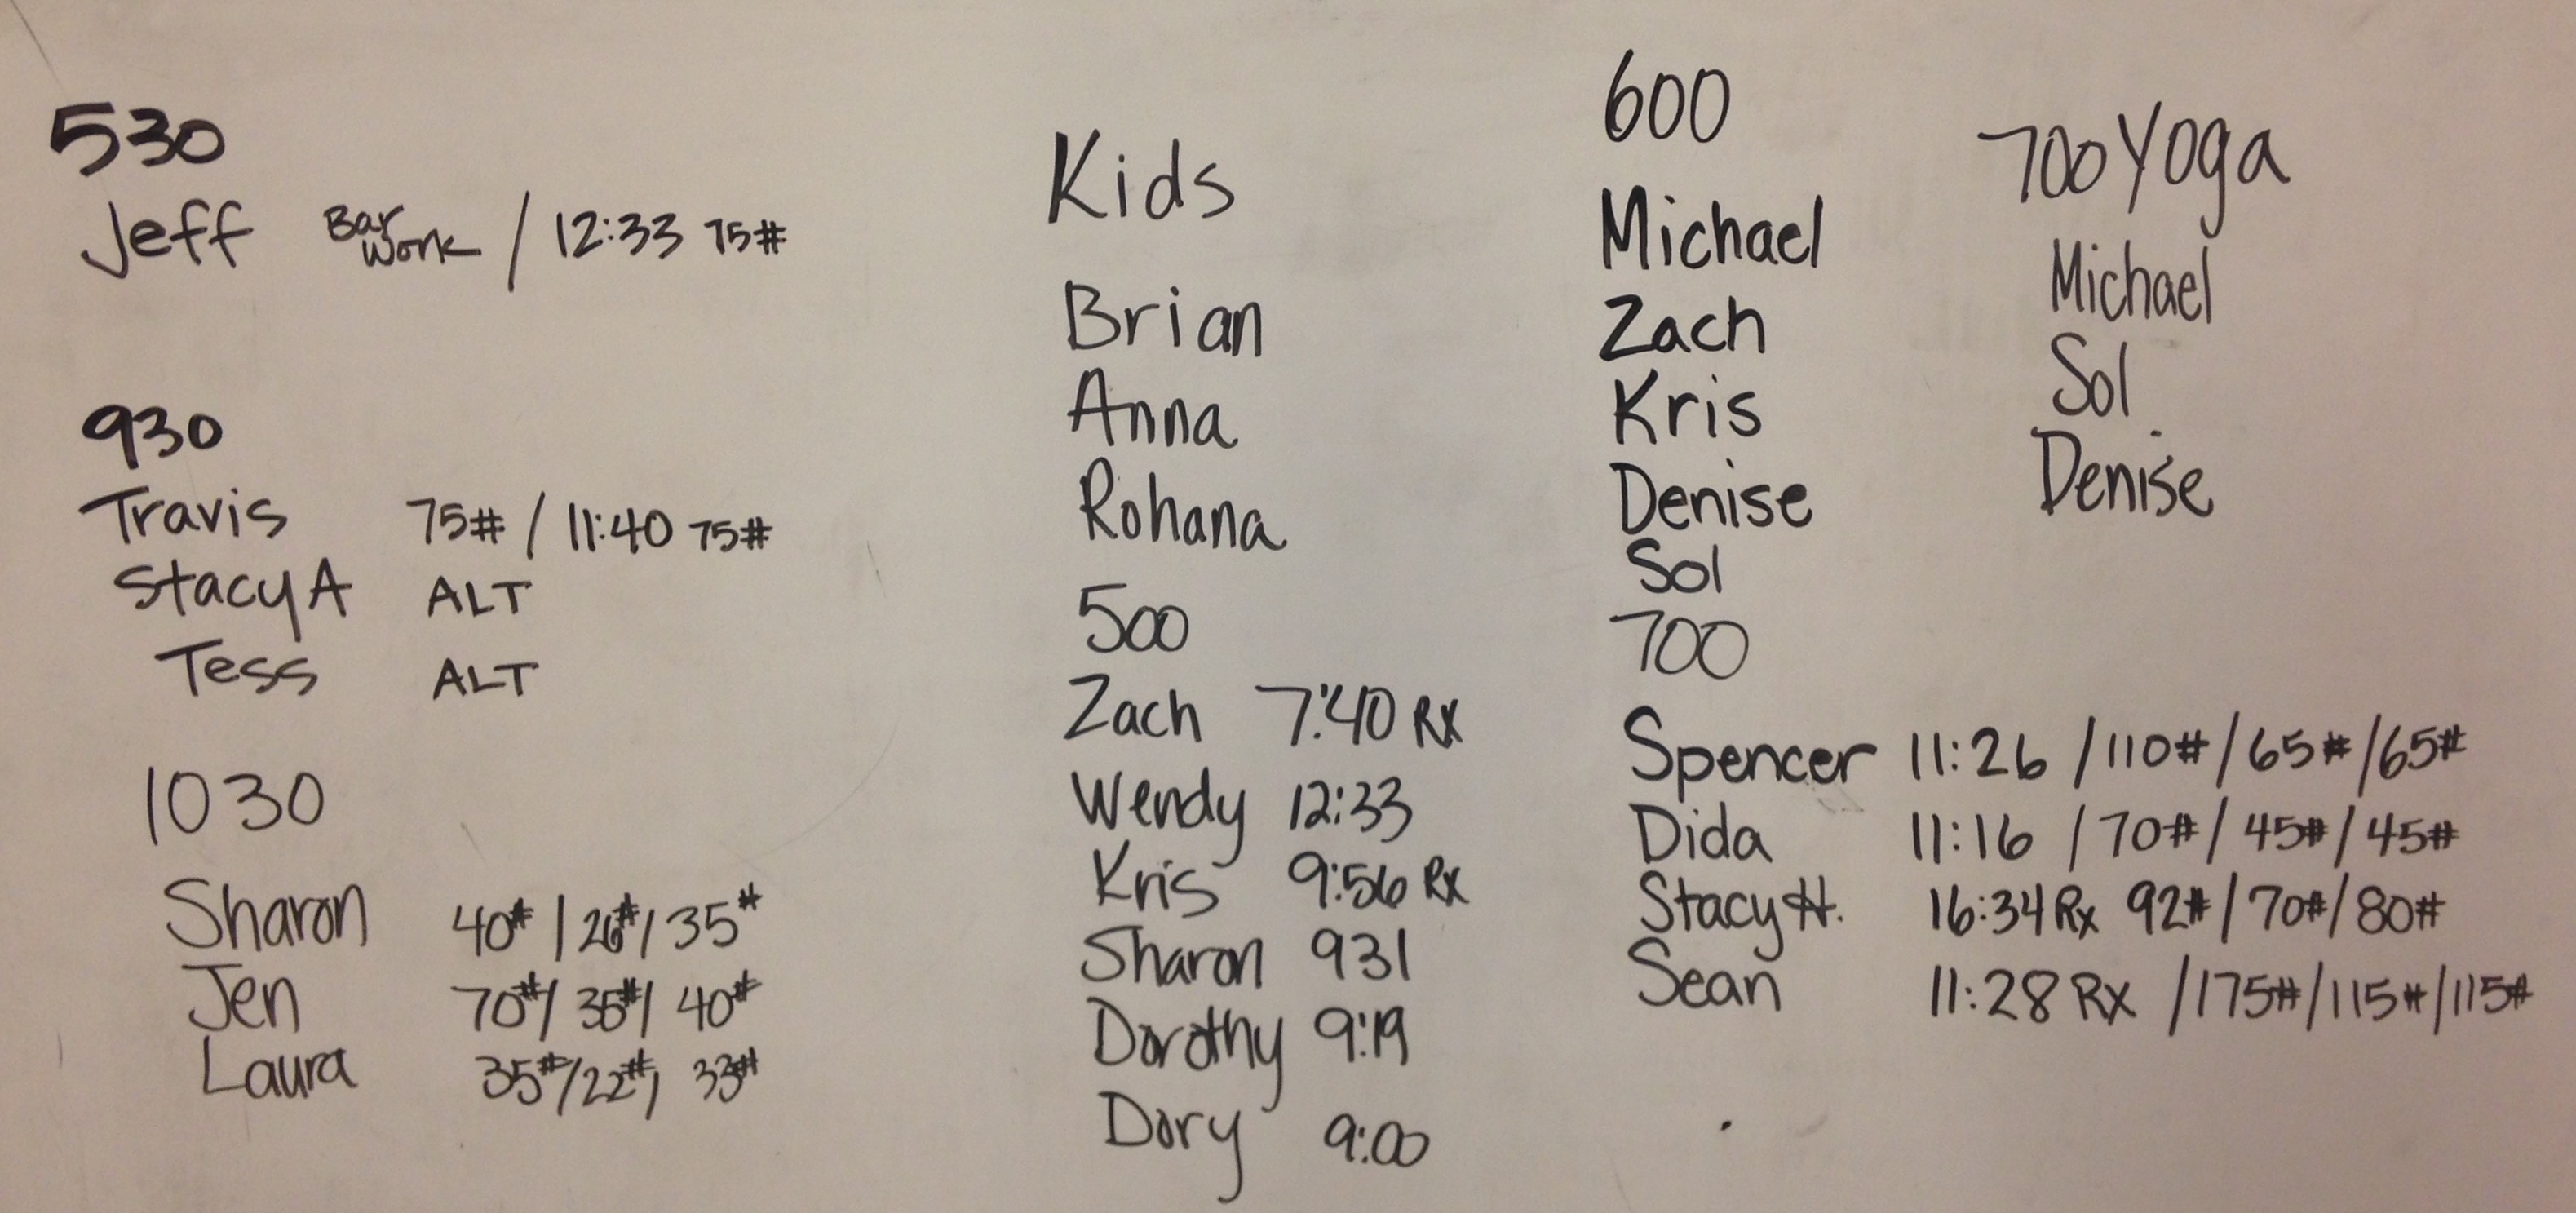 530
Jeff Bar Work / 12:33 75#
930
Travis 75# / 11:40 75#
Stacy A ALT
Tess ALT
1030
Sharon 40# / 26# / 35#
Jen 70# / 35# / 40#
Laura 35# / 22# / 33#
Kids
Brian
Anna
Rohana
500
Zach 7:40 RX
Wendy 12:33
Kris 9:56 Rx
Sharon 931
Dorothy 9:19
Dory 9:00
600
Michael
Zach
Kris
Denise
Sol
700
Spencer 11:26 / 110# / 65# / 65#
Dida 11:16 / 70# / 45# / 45#
Stacy H. 16:34 Rx 92# / 70# / 80#
Sean 11:28 RX / 175# / 115# / 115#
700 Yoga
Michael
Sol
Denise